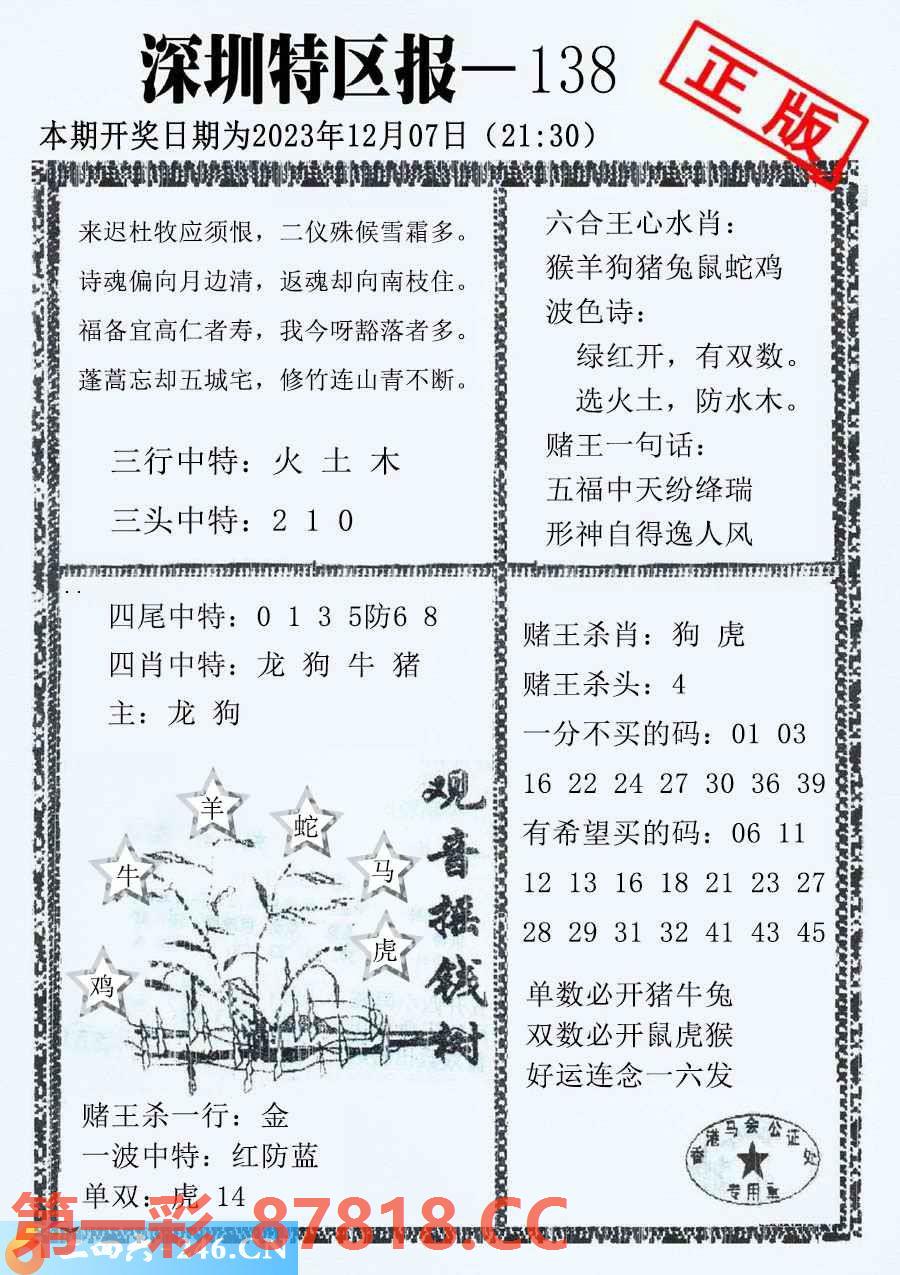 深圳特区报—138
正版
本期开奖日期为2023年12月07日（21:30）
来迟杜牧应须恨，二仪殊候雪霜多。
诗魂偏向月边清，返魂却向南枝住。
福备宜高仁者寿，我今呀豁落者多。
蓬蒿忘却五城宅，修竹连山青不断。
三行中特：火 土 木
三头中特：2 1 0
六合王心水肖：
猴羊狗猪兔鼠蛇鸡
波色诗：
绿红开，有双数。
选火土，防水木。
赌王一句话：
五福中天纷绛瑞
形神自得逸人风
四尾中特：0 1 3 5防6 8
四肖中特：龙 狗 牛 猪
主：龙 狗
羊
蛇
牛
马
虎
鸡
观音摇钱树
赌王杀一行：金
一波中特：红防蓝
单双：虎 14
赌王杀肖：狗 虎
赌王杀头：4
一分不买的码：01 03
16 22 24 27 30 36 39
有希望买的码：06 11
12 13 16 18 21 23 27
28 29 31 32 41 43 45
单数必开猪牛兔
双数必开鼠虎猴
好运连念一六发
香港马会公证处
专用章
第一彩 87818.CC
246.CN